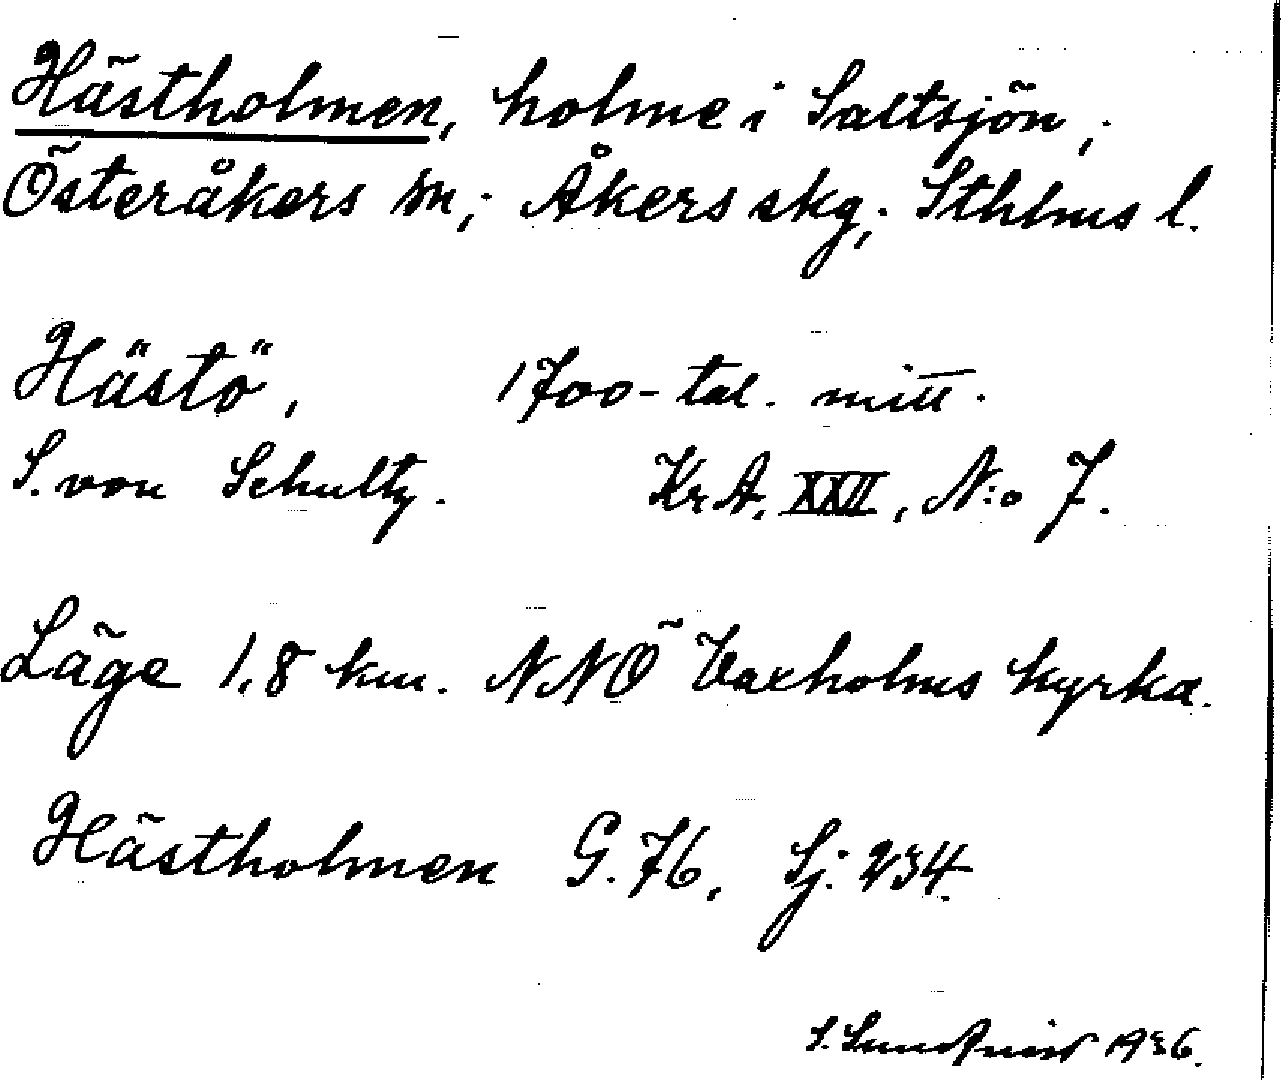 Hästholmen, holme i Saltsjön,;
Österåkers sn,; Åkers skg,; Sthlms l.
Hästö, 1700-tal. mitt.
S. von Schultz. Kr A. XXII, N:o 7.
Läge 1,8 km. NNÖ Vaxholms kyrka.
Hästholmen G. 76, Sj: 234.
S. Sundqvist 1936.